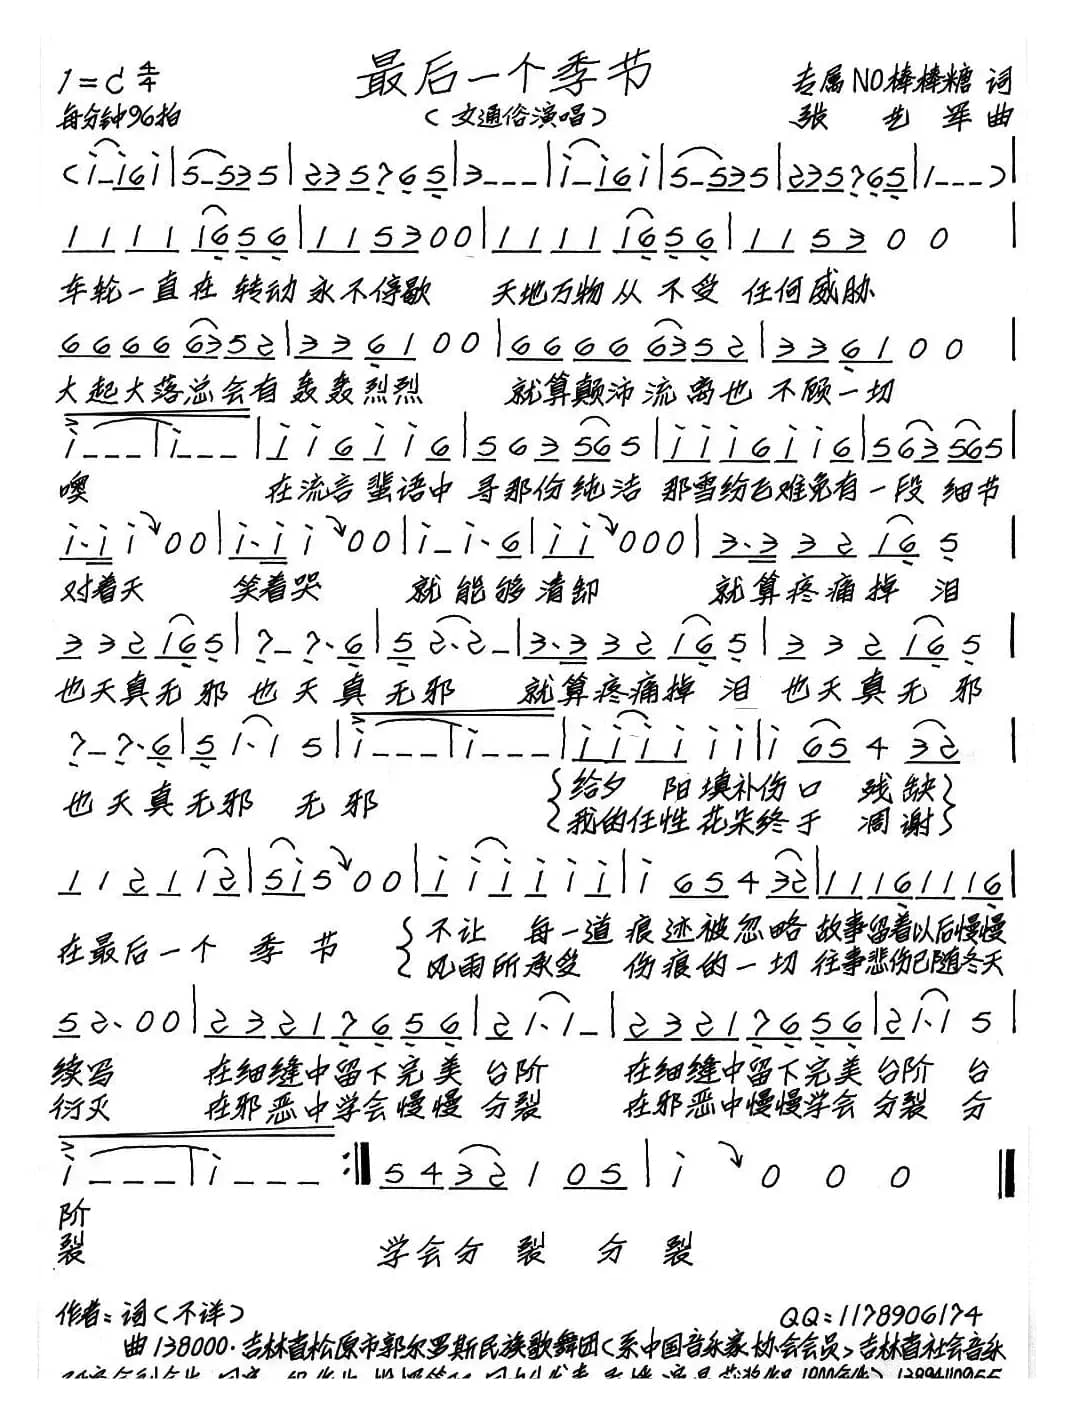 1=C 4/4
最后一个季节
专属NO棒棒糖 词
每分钟96拍
(文通俗演唱)
张艺军 曲
(i-i6i|5-535|235765|3---|i-i6i|5-535|235765|1---)|
1111 1656|115300|1111 1656|1153 0 0|
车轮一直在 转动 永不停歇 天地万物从 不受 任何威胁
6666 6352|336100|6666 6352|3361 0 0|
大起大落总会有 轰轰烈烈 就算颠沛流离也 不顾一切
i---|i---|ii6ii6|563565|iii6ii6|563565
噢 在流言蜚语中 寻那份纯洁 那雪纷飞难免有一段 细节
i·ii00|i·ii00|i-i·6|ii000|3·332 16 5|
对着天 笑着哭 就能够清卸 就算疼痛掉 泪
332165|7-7·6|52·2-|3·332165|332165|
也天真无邪 也天真 无邪 就算疼痛掉 泪 也天真无 邪
7-7·6|51·15|i---|i---|iiiiiii|i 65 4 32|
也天真无邪 无邪
给夕 阳填补伤口 残缺
我的任性花朵终于 凋谢
112112|5i500|iiiiiii|i 65432|11161116|
在最后一个 季 节
不让 每一道痕迹被忽略 故事留着以后慢慢
风雨所承受 伤痕的一切 往事悲伤已随冬天
52·00|23217656|21·1-|23217656|21·15|
续写 在细缝中留下完美 台阶 在细缝中留下完美 台阶 台
衍灭 在邪恶中学会慢慢 分裂 在邪恶中慢慢学会 分裂 分
i---|i---:‖54321 05|i 0 0 0‖
阶
裂 学会分 裂 分 裂
作者:词(不详)
QQ:1178906174
曲138000·吉林省松原市郭尔罗斯民族歌舞团(系中国音乐家协会会员)吉林省社会音乐